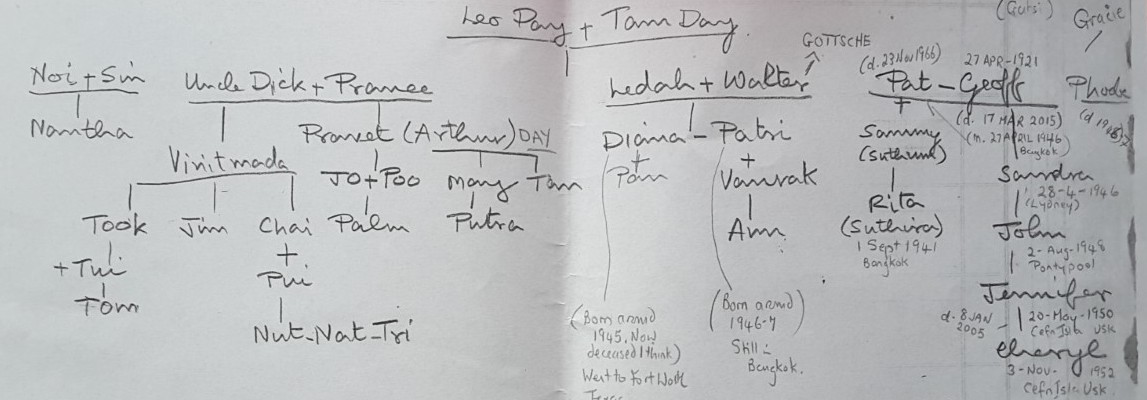 Leo Pay + Tam Day
(Gutsi)
Gracie
GOTTSCHE
Noi + Sin
Nantha
Uncle Dick + Pranee
Vinitmada
Took
+ Tui
Tom
Jim
Chai
+
Pui
Nut-Nat-Tri
Pranet (Arthur) DAY
JO + Poo
Palm
Many
Putra
Tom
Ledah + Walter
Diana - Patri
+
Pam
+
Vanrak
Ann
(Born around
1945, Now
deceased I think)
Went to Fort Worth
Texas
(Born around
1946-7)
Still in
Bangkok.
(d. 23 Nov 1966)
27 APR-1921
Pat - Geoff
+
Sammy
(Suthum)
Rita
(Suthira)
1 Sept 1941
Bangkok
(d. 17 MAR 2015)
(m. 27 APRIL 1946
Bangkok)
Sandra
28-4-1946
(Lydney)
John
2-Aug-1948
Pontypool
Jennifer
d. 8 JAN
2005
20-May-1950
Cefn Ila Usk
Cheryl
3-Nov-1952
Cefn Ila Usk
Phoebe